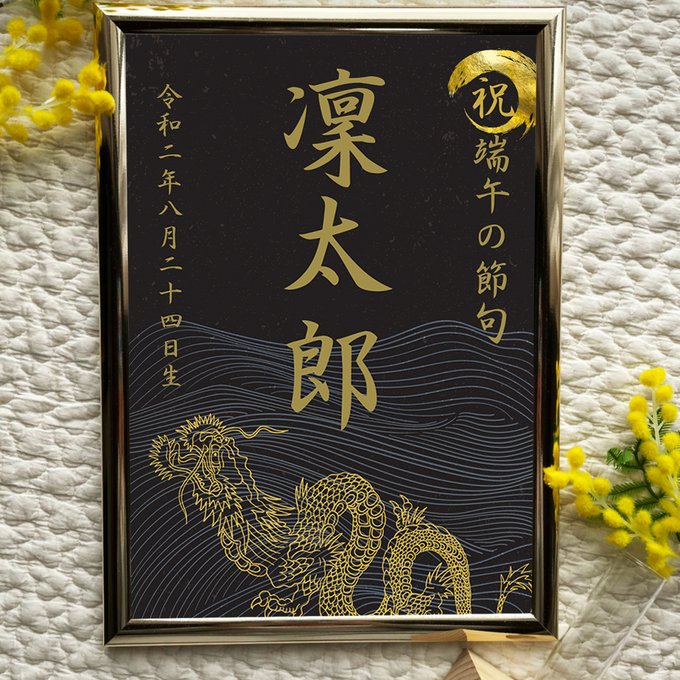 祝端午の節句
凛太郎
令和二年八月二十四日生